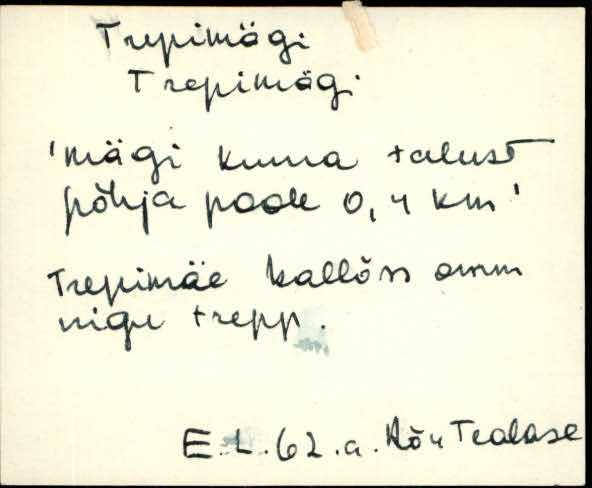 Trepimägi
Trepimägi
'mägi Kuura talust
põhja poole 0,4 km'
Trepimäe kallõss omm
nigu trepp.
E.L.62.a. Kõu Tealase